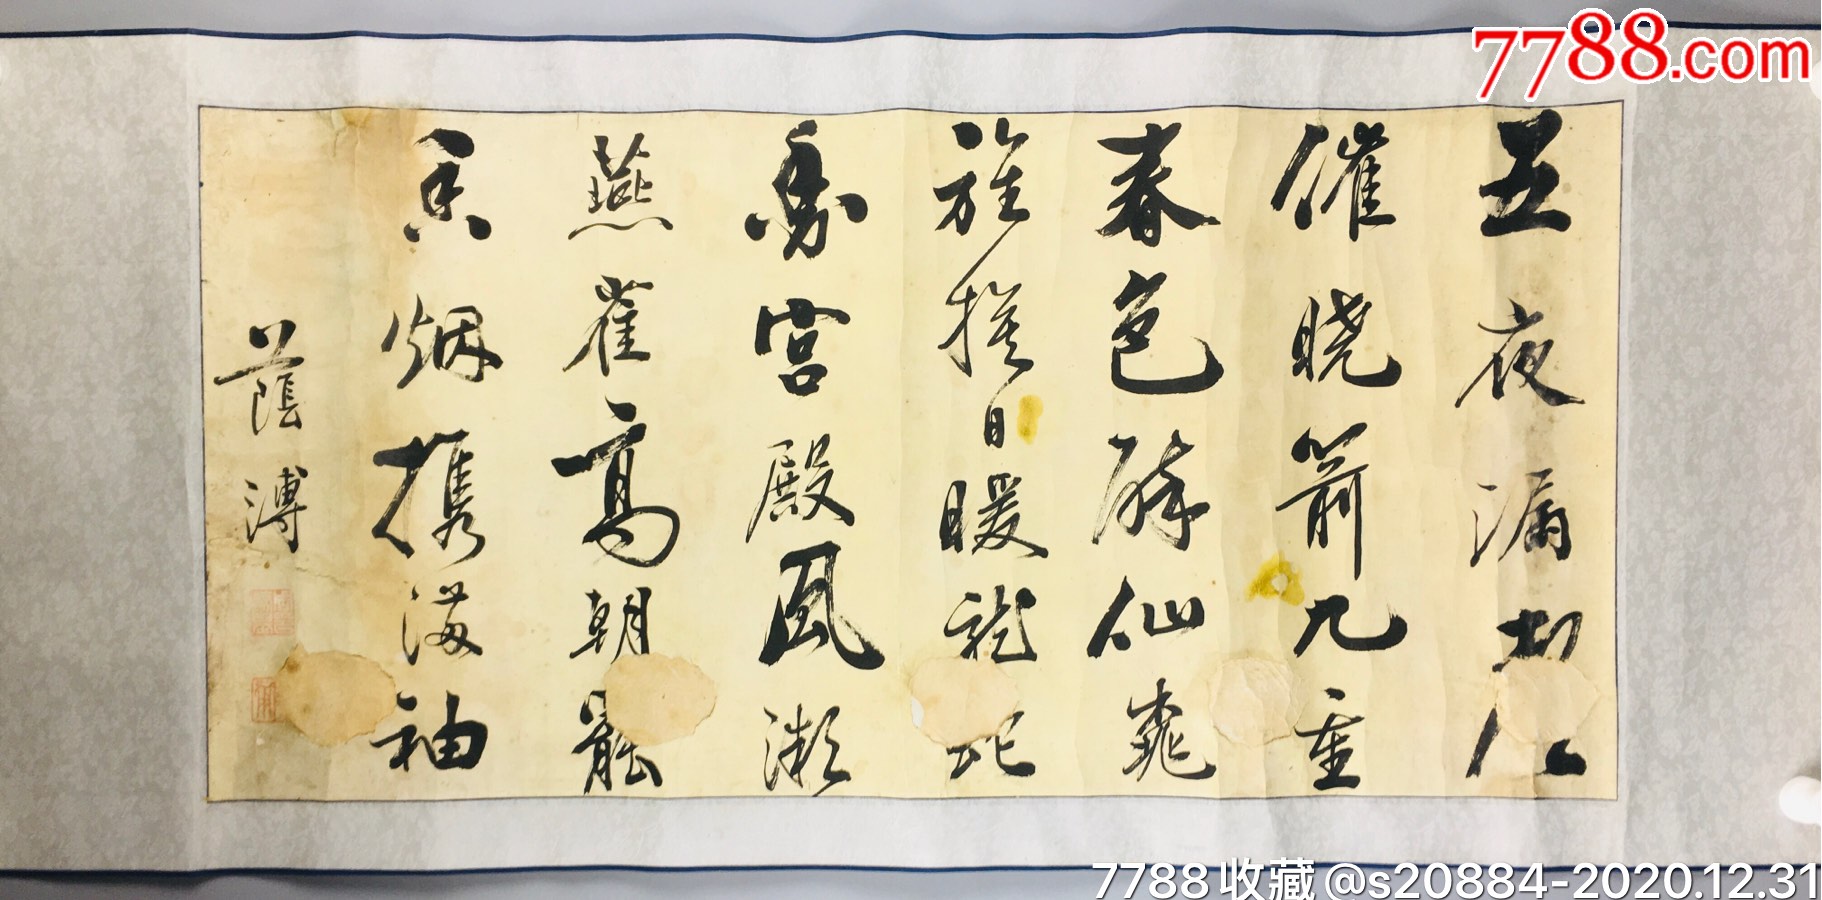 7788.com
五夜漏
催曉箭九重
春色醉仙桃
旌旗日暖龍蛇
動宮殿風微
燕雀高朝罷
香烟携滿袖
蔭溥
7788收藏@s20884-2020.12.31